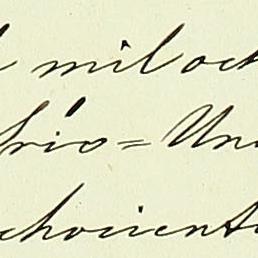 mil och
frio = Un
chocient